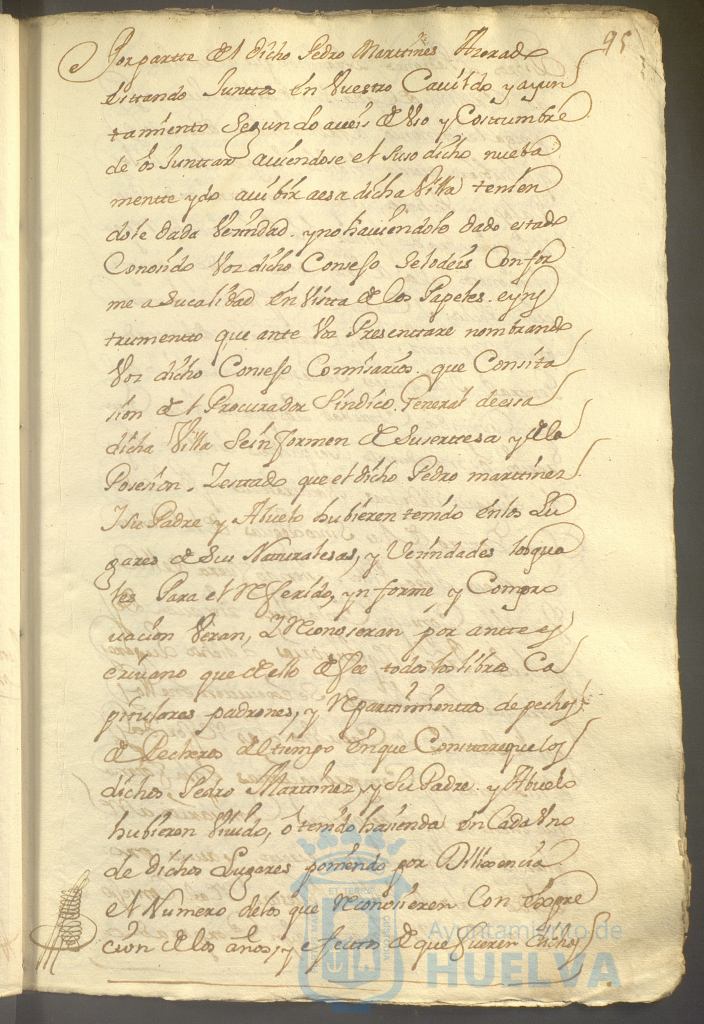 95
Por partte del dicho Pedro Marttines Honrado
esttando Junttos en Vuestro Cavildo y ayun
tamiento segun lo aveis de Uso y Costtumbre
de os Junttar aviendose el suso dicho nueba
mentte ydo a vibir a esa dicha Villa tenien
dole dada Vecindad. y no haviendole dado estado
Conosido Vos dicho Consejo se lo deis Confor
me a su calidad en Vistta de los Papeles. e yns
trumentto que ante Vos Presenttare nombrando
Vos dicho Consejo Comisarios. que Con sita
sion del Procurador Sindico General de essa
dicha Villa se informen de su sertesa y de la
Posesion. Y estado que el dicho Pedro marttinez
Y su Padre y Abuelo hubieren tenido en los Lu
gares de sus Naturalesas, y Vecindades los qua
les Para el Referido, ynforme, y Compro
vacion Veran, Y Reconoseran por antte es
crivano que de ello de fee todos los libros Ca
pitulares padrones, y Reparttimienttos de pechos
de Pecheros del tiempo en que Consttare que los
dichos Pedro Marttinez, y Su Padre. y Abuelo
hubieren Vivido, ó tenido hasienda en Cada Uno
de dichos Lugares poniendo por Dilixencia
el Numero de los que Reconosieren Con expre
cion de los años, y efectos de que fueren dichos
Ayuntamiento de
HUELVA